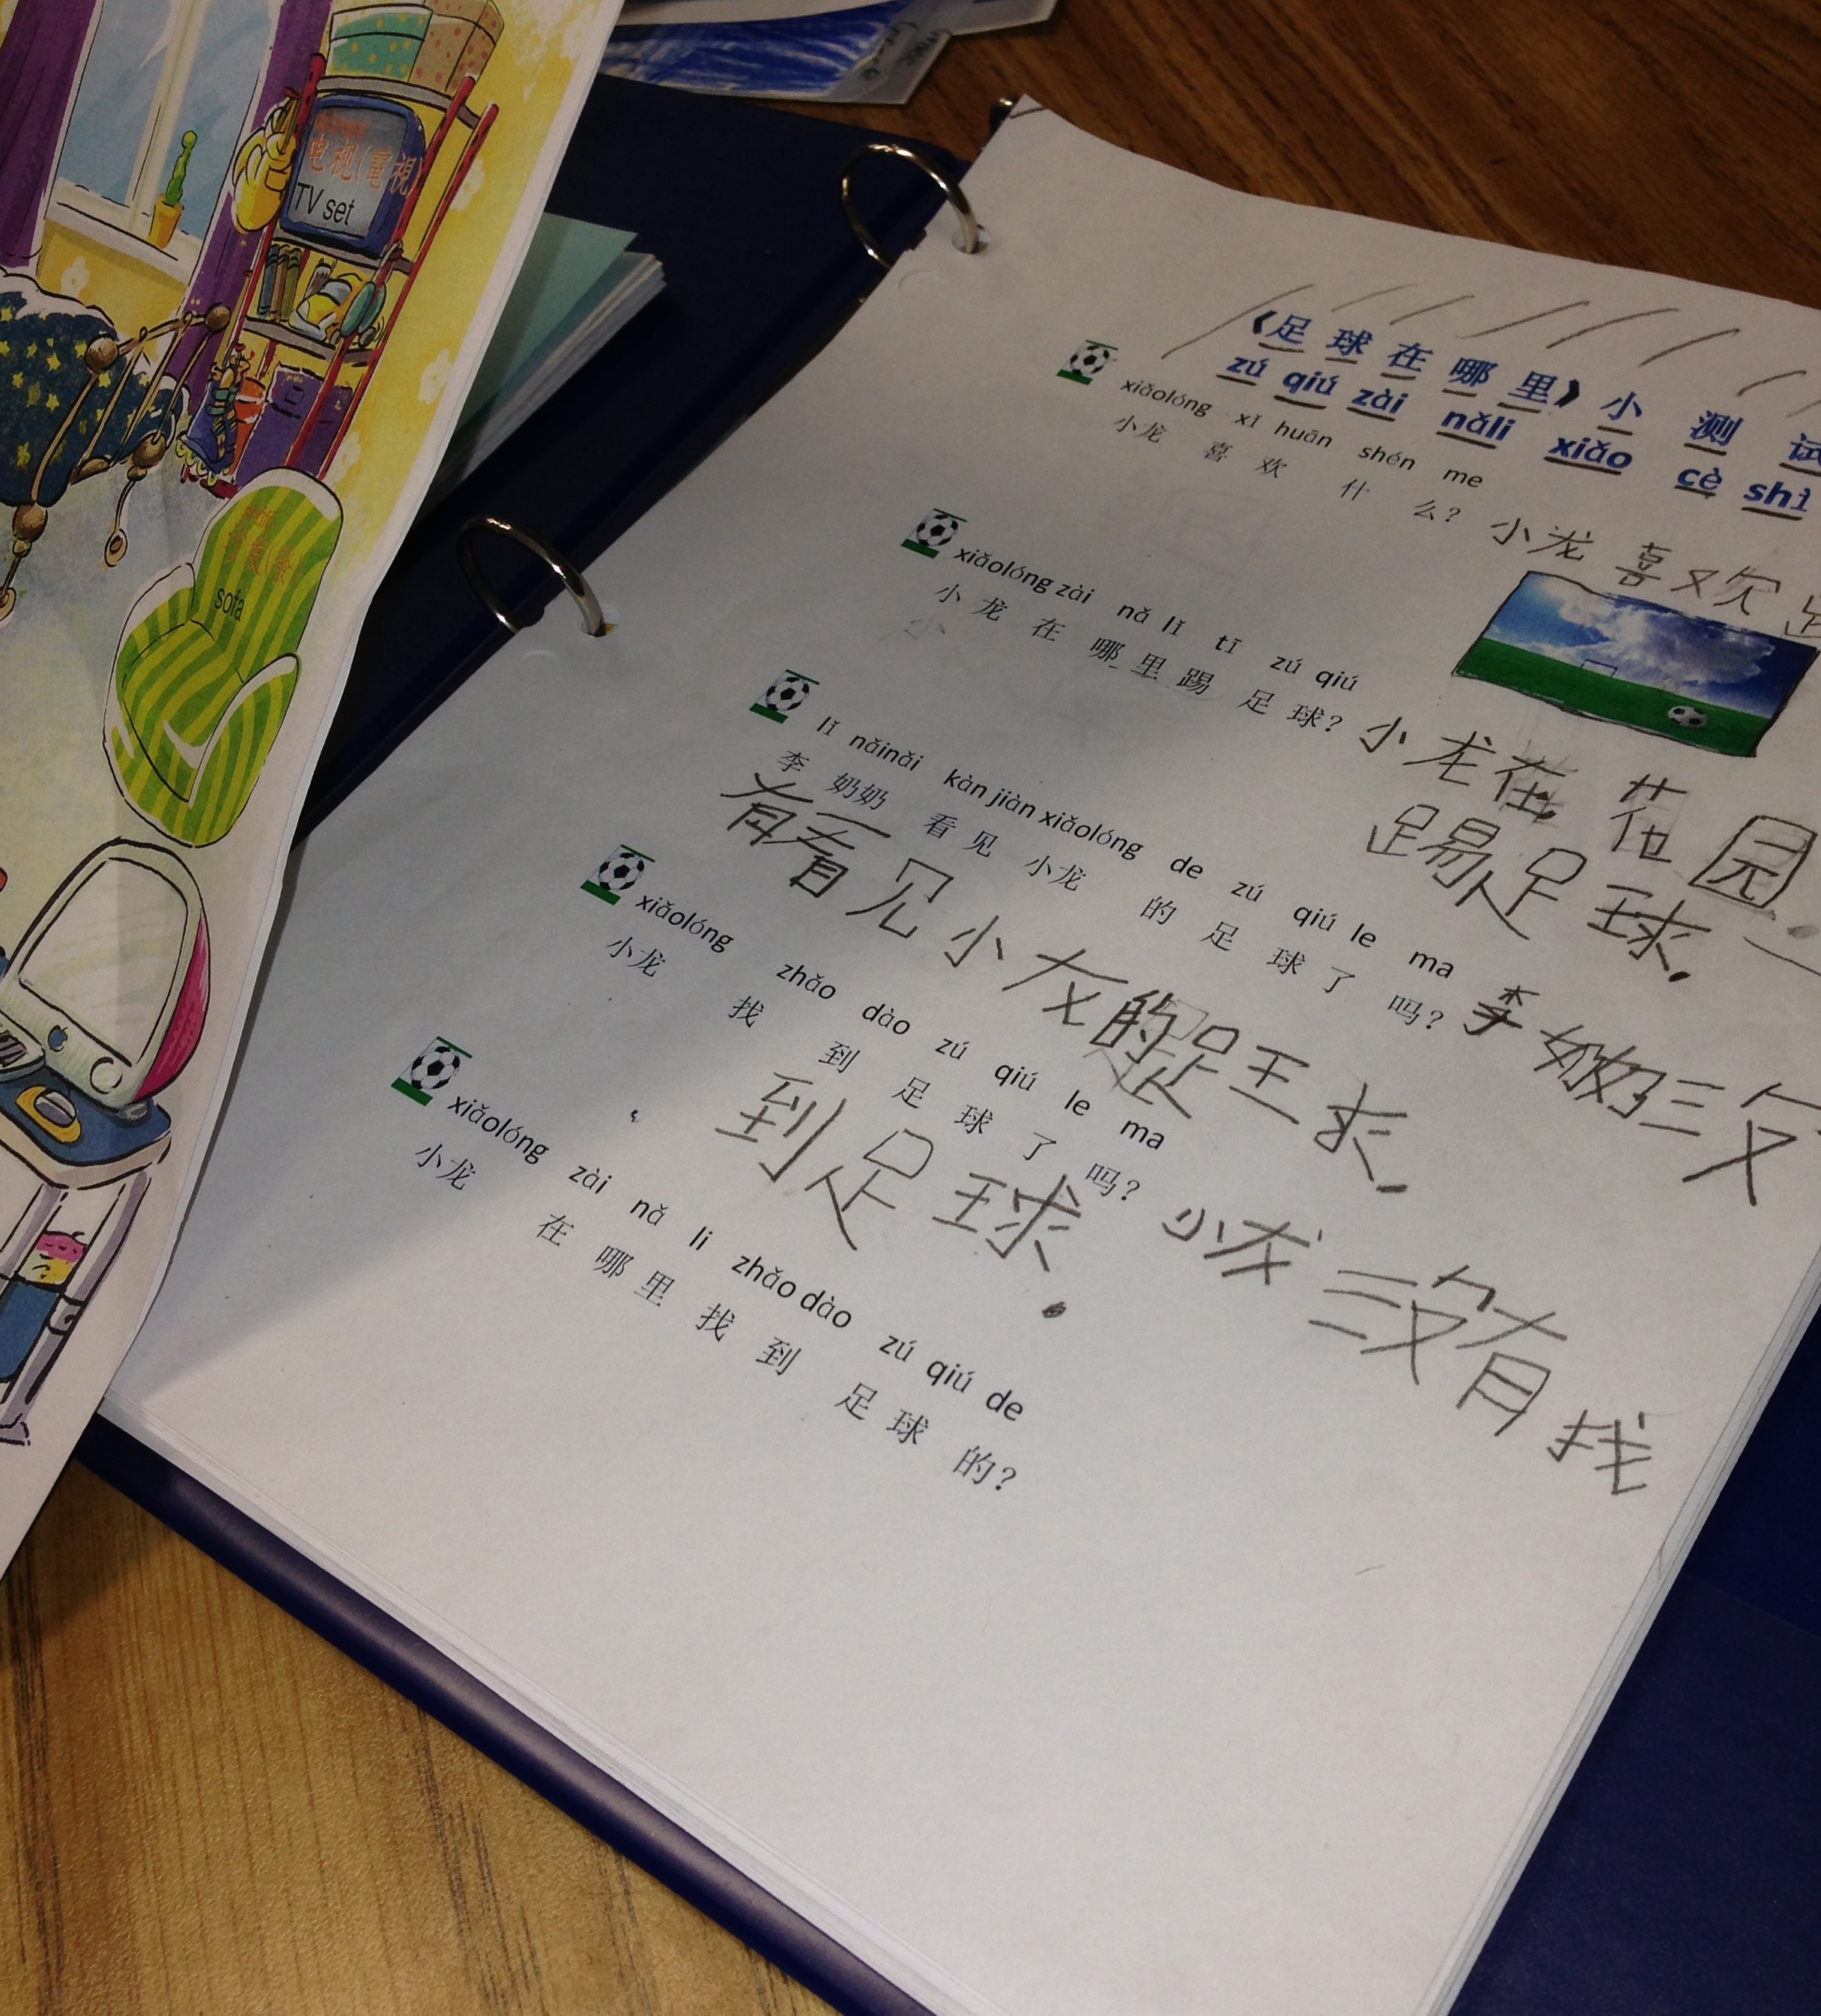 电视(電視)
TV set
sofa
《足球在哪里》小测试
zú qiú zài nǎli xiǎo cè shì
xiǎolóng xǐ huān shén me
小龙喜欢什么?
小龙喜欢足
xiǎolóng zài nǎ lǐ tī zú qiú
小龙在哪里踢足球?
小龙在花园
踢足球.
lǐ nǎinǎi kàn jiàn xiǎolóng de zú qiú le ma
李奶奶看见小龙的足球了吗?
李奶奶没
有看见小龙的足球.
xiǎolóng zhǎo dào zú qiú le ma
小龙找到足球了吗?
小龙没有找
到足球.
xiǎolóng zài nǎ li zhǎo dào zú qiú de
小龙在哪里找到足球的?